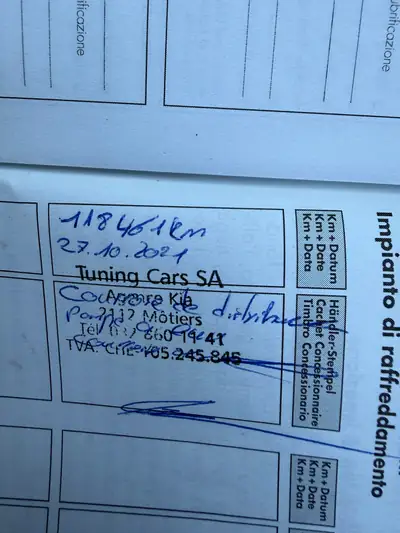 ubrificazione
rificazione
118461Km
27.10.2021
Tuning Cars SA
Agence Kia
2112 Môtiers
Courroie de distribution
Pompe à eau
TVA: CHE-105.245.845
Km+Datum
Km+Date
Km+Data
Händler-Stempel
Cachet Concessionnaire
Timbro Concessionario
Impianto di raffreddamento
Km+Datum
Km+Date
Km+Data